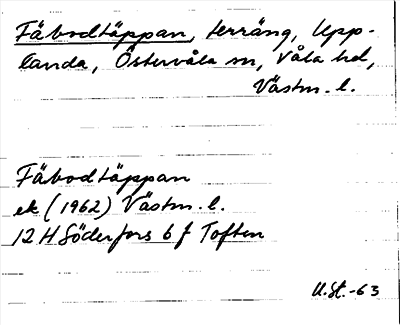 Fäbodtäppan, terräng, Upp-
landa, Östervåla sn, Våla hd,
Västm. l.
Fäbodtäppan
ek (1962) Västm. l.
12 H Söderfors 6 f Toften
U.St.-63